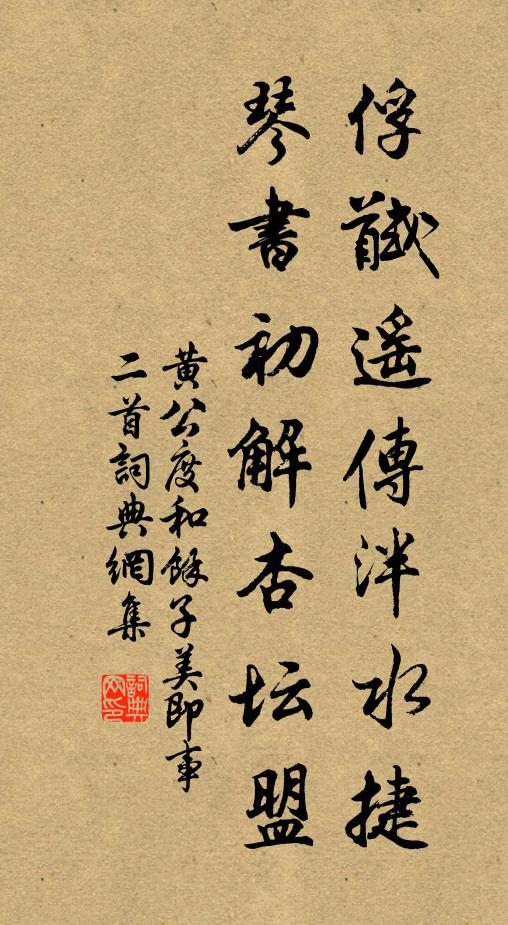 俘馘遥傳泮水捷
琴書初解杏坛盟
黄公度和餘子美即事
二首詞典網集
詞典網印